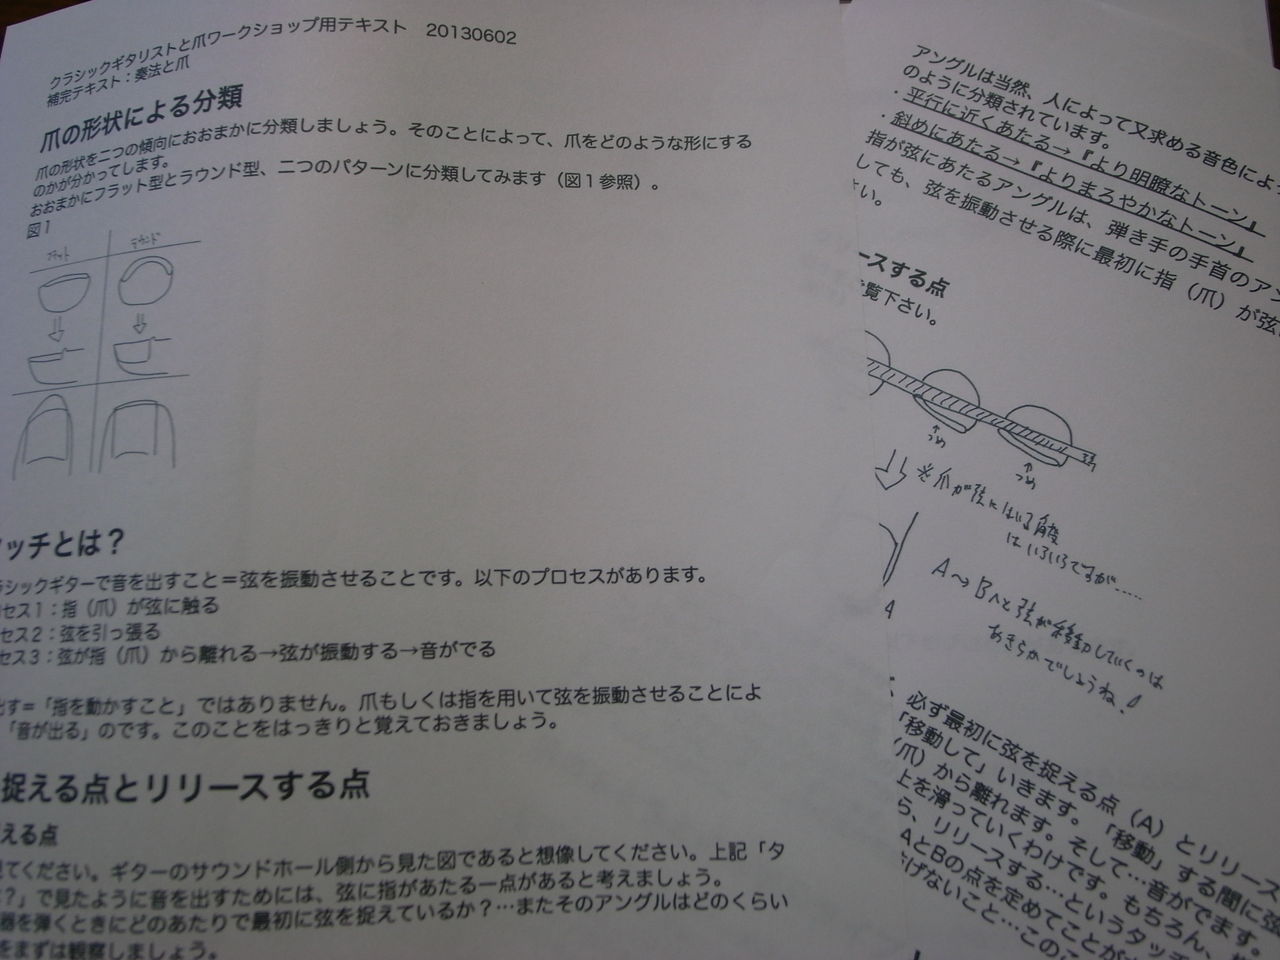 クラシックギタリストと爪ワークショップ用テキスト　20130602
補完テキスト：奏法と爪
爪の形状による分類
爪の形状を二つの傾向におおまかに分類しましょう。そのことによって、爪をどのような形にする
のかが分かってします。
おおまかにフラット型とラウンド型、二つのパターンに分類してみます（図１参照）。
図１
フラット
ラウンド
ッチとは？
シックギターで音を出すこと＝弦を振動させることです。以下のプロセスがあります。
セス１：指（爪）が弦に触る
セス２：弦を引っ張る
セス３：弦が指（爪）から離れる→弦が振動する→音がでる
出す＝「指を動かすこと」ではありません。爪もしくは指を用いて弦を振動させることによ
「音が出る」のです。このことをはっきりと覚えておきましょう。
捉える点とリリースする点
える点
てください。ギターのサウンドホール側から見た図であると想像してください。上記「タ
？」で見たように音を出すためには、弦に指があたる一点があると考えましょう。
器を弾くときにどのあたりで最初に弦を捉えているか？…またそのアングルはどのくらい
をまずは観察しましょう。
アングルは当然、人によって又求める音色によ
のように分類されています。
・平行に近くあたる→『より明瞭なトーン』
・斜めにあたる→『よりまろやかなトーン』
指が弦にあたるアングルは、弾き手の手首のアン
しても、弦を振動させる際に最初に指（爪）が弦
さい。
ースする点
ご覧下さい。
つめ
つめ
弦
※爪が弦にはいる角度
はいろいろですが……
A→Bへと弦が移動していくのは
あきらかでしょうね！
A
必ず最初に弦を捉える点（A）とリリース
「移動して」いきます。「移動」する間に弦
（爪）から離れます。そして…音がでます。
上を滑っていくわけです。もちろん、
ら、リリースする…というタッ
AとBの点を定めてことが
げないこと…このこ